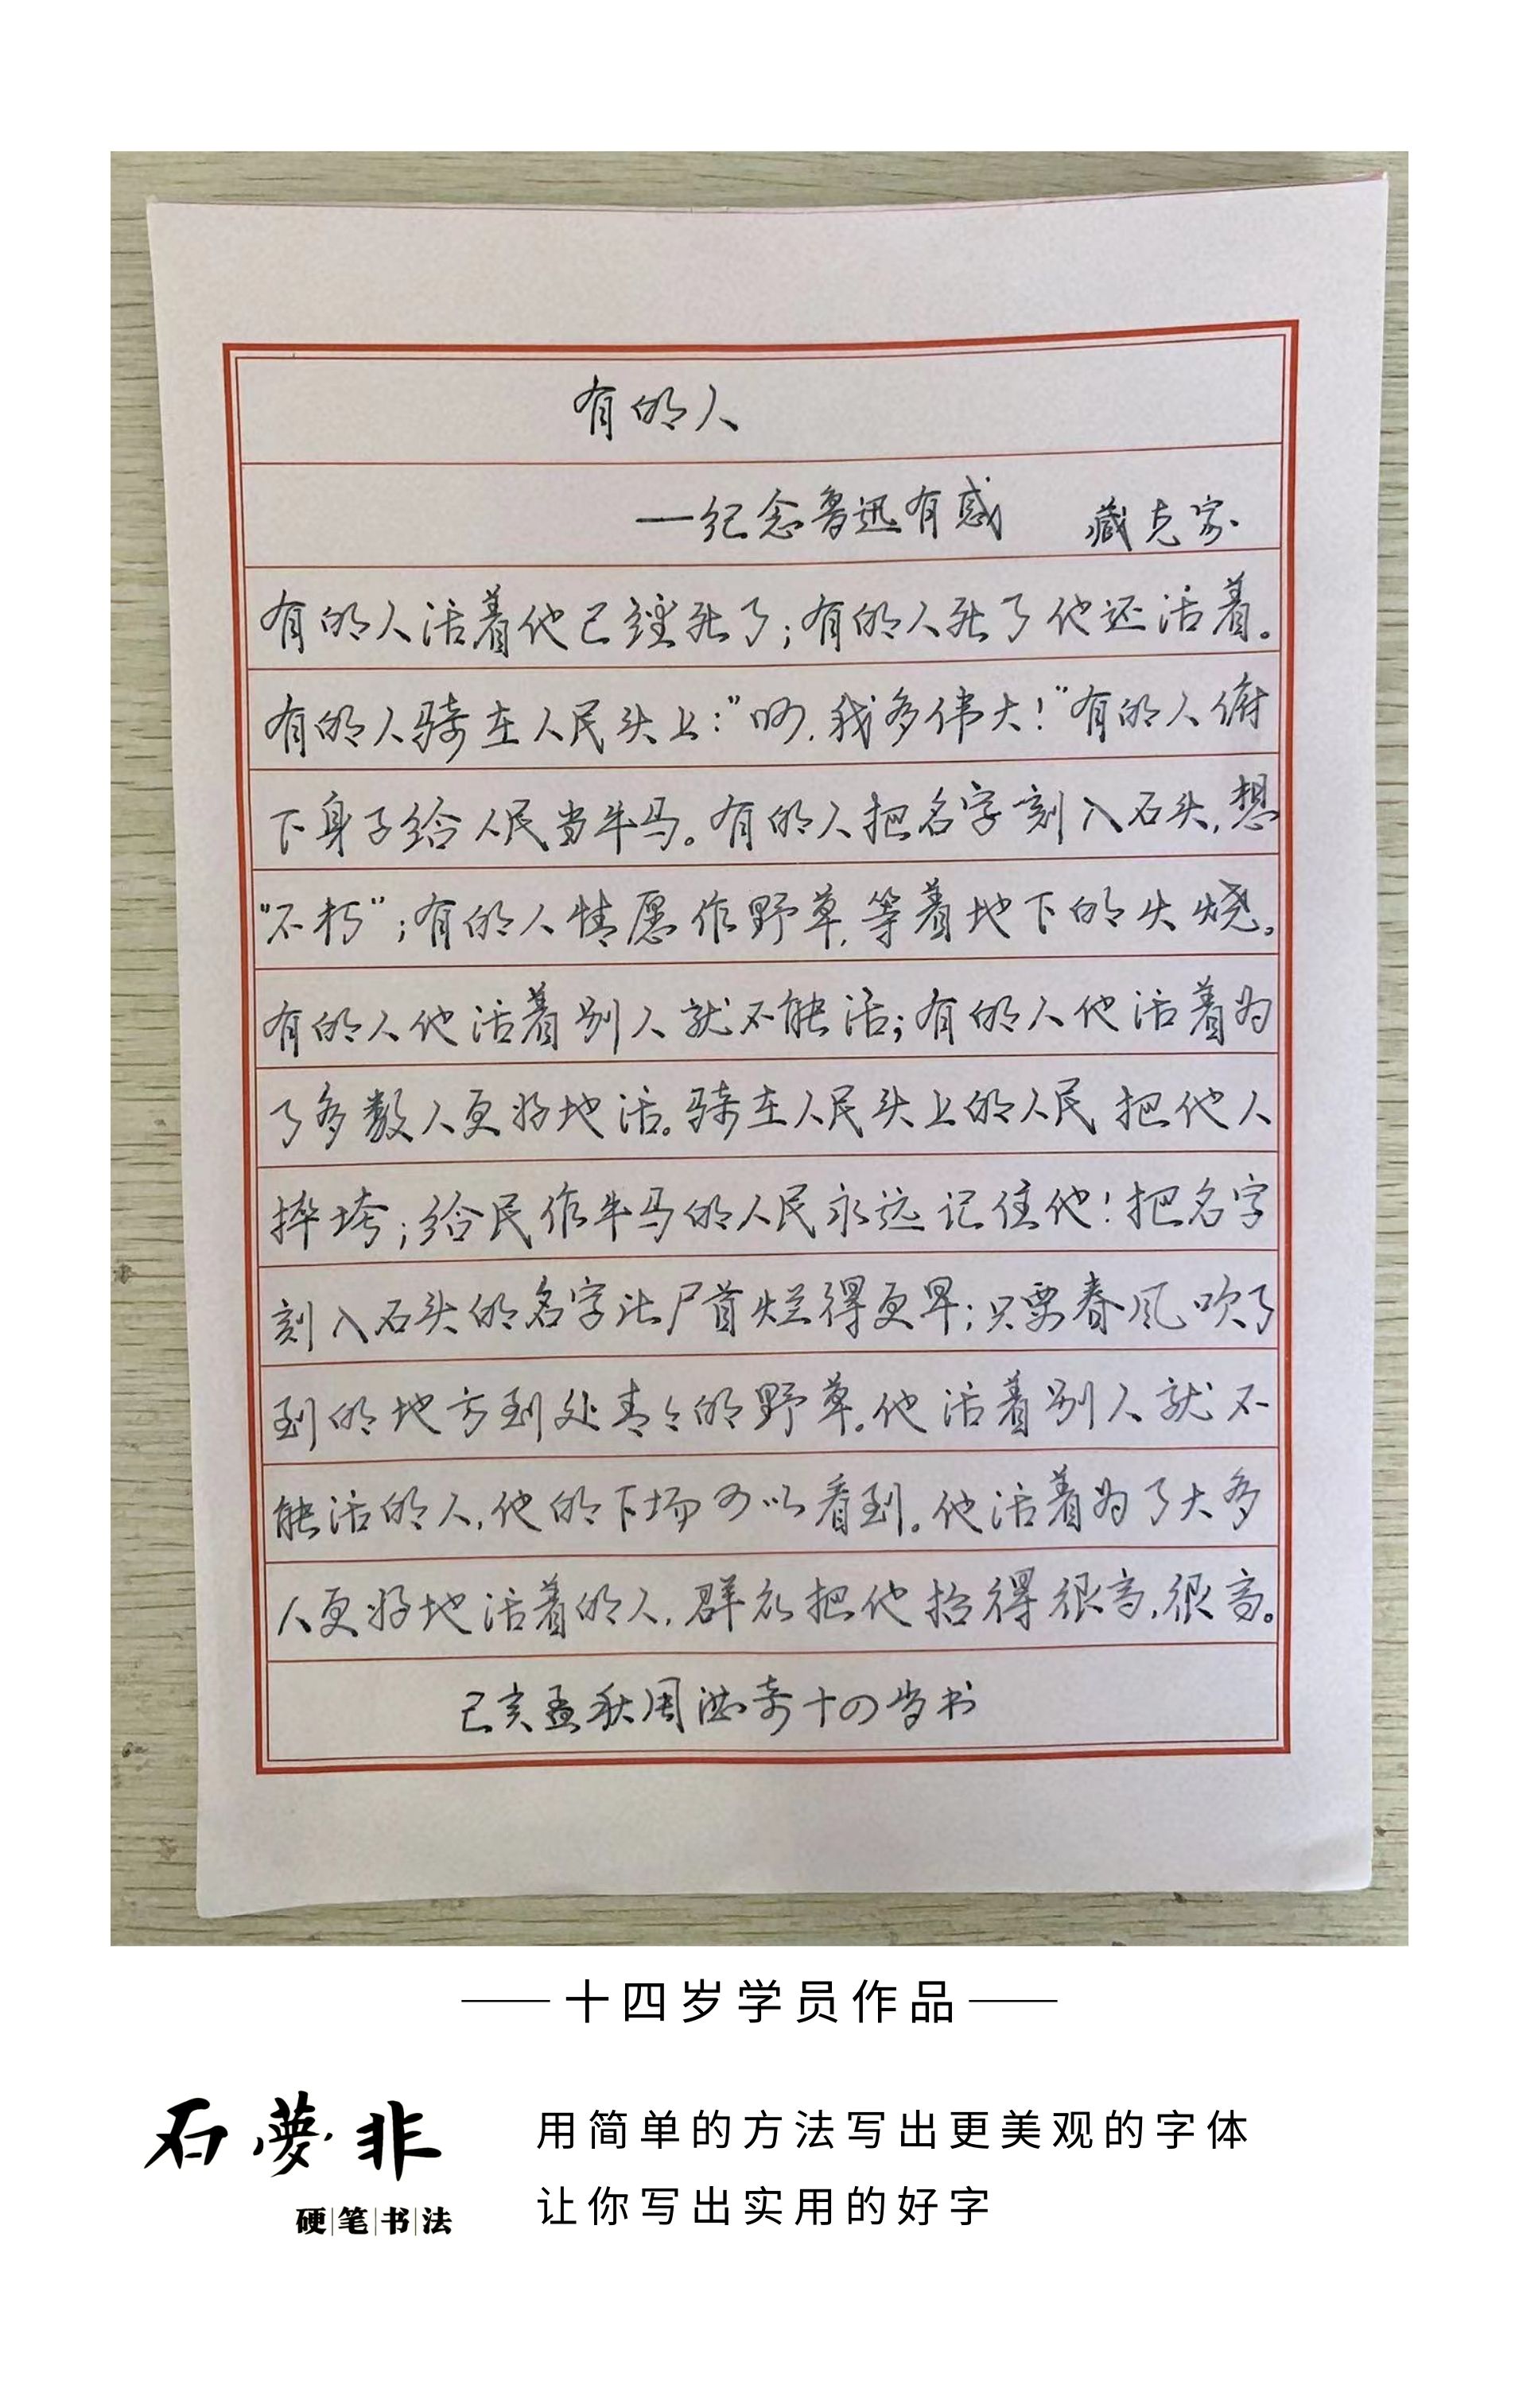 有的人
——纪念鲁迅有感 臧克家
有的人活着他已经死了；有的人死了他还活着。
有的人骑在人民头上：“呵，我多伟大！”有的人俯
下身子给人民当牛马。有的人把名字刻入石头，想
“不朽”；有的人情愿作野草，等着地下的火烧。
有的人他活着别人就不能活；有的人他活着为
了多数人更好地活。骑在人民头上的人民把他人
摔垮；给民作牛马的人民永远记住他！把名字
刻入石头的名字比尸首烂得更早；只要春风吹了
到的地方到处青々的野草。他活着别人就不
能活的人，他的下场可以看到。他活着为了大多
人更好地活着的人，群众把他抬得很高，很高。
己亥孟秋周 奇十四岁书
十四岁学员作品
石夢非
硬笔书法
用简单的方法写出更美观的字体
让你写出实用的好字